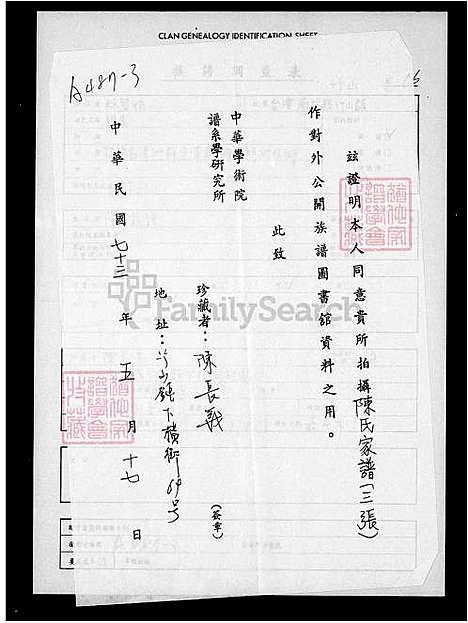 CLAN GENEALOGY IDENTIFICATION SHEET
A487-3
茲證明本人同意貴所拍攝陳氏家譜(三張)
作對外公開族譜圖書館資料之用。
此致
中華學術院
譜系學研究所
珍藏者：陳長義
(簽章)
地址：竹山鎮下橫街69号
中華民國七十三年五月十七日
FamilySearch